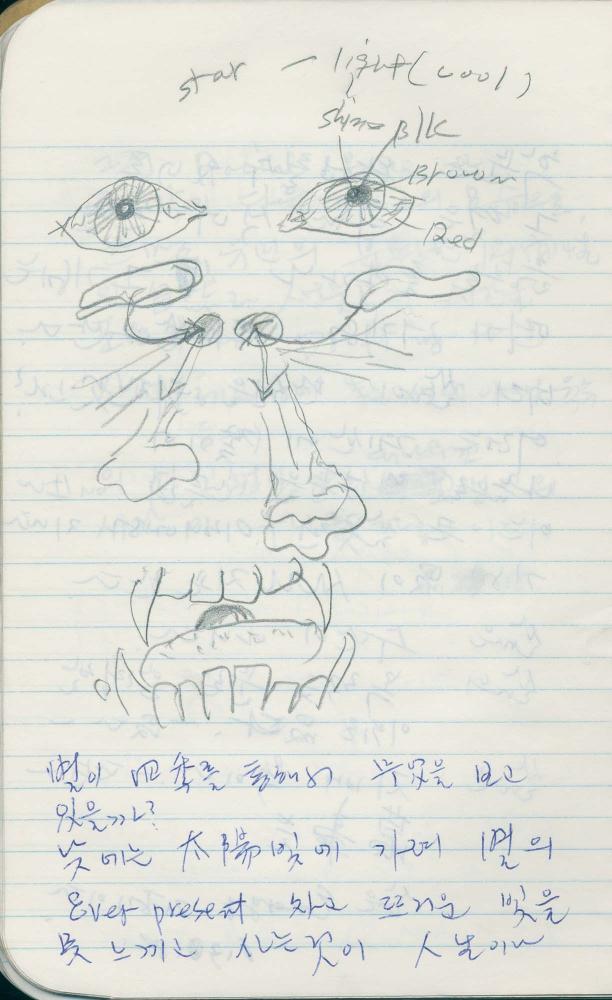 star — light (cool)
shine BlK
Brown
Red
별이 四季를 통해서 무엇을 보고
있을까?
낮에는 太陽빛에 가려 별의
Ever present 차고 뜨거운 빛을
못 느끼고 사는 것이 人生이나